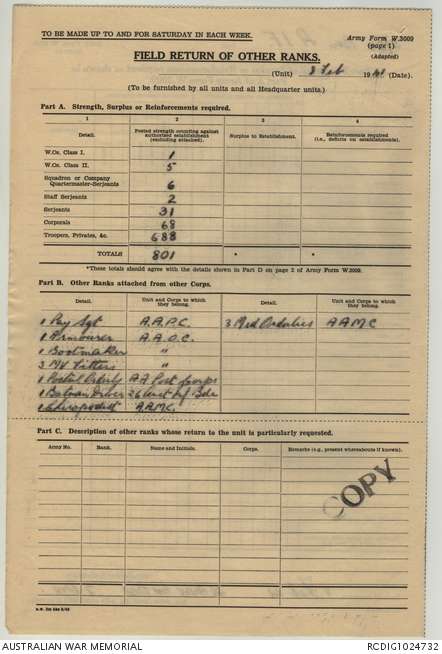 TO BE MADE UP TO AND FOR SATURDAY IN EACH WEEK.
Army Form W.3009
(page 1)
(Adapted)
FIELD RETURN OF OTHER RANKS.
(Unit) 8 Feb 1941 (Date).
(To be furnished by all units and all Headquarter units.)
Part A. Strength, Surplus or Reinforcements required.
1 2 3 4
Detail. Posted strength counting against authorised establishment (excluding attached). Surplus to Establishment. Reinforcements required (i.e., deficits on establishments).
W.Os. Class I. 1
W.Os. Class II. 5
Squadron or Company Quartermaster-Serjeants 6
Staff Serjeants 2
Serjeants 31
Corporals 68
Troopers, Privates, &c. 688
TOTALS 801 * *
*These totals should agree with the details shown in Part D on page 2 of Army Form W.3009.
Part B. Other Ranks attached from other Corps.
Detail. Unit and Corps to which they belong. Detail. Unit and Corps to which they belong.
1 Pay Sgt A.A.P.C. 3 Med Orderlies A A M C
1 Armourer A.A.O.C.
1 Bootmaker "
3 MV Fitters "
1 Postal Orderly AA Post Corps
1 Batman Driver 26 Aust Inf Bde
1 Chiropodist A.A.M.C.
Part C. Description of other ranks whose return to the unit is particularly requested.
Army No. Rank. Name and Initials. Corps. Remarks (e.g., present whereabouts if known).
COPY
AUSTRALIAN WAR MEMORIAL
RCDIG1024732